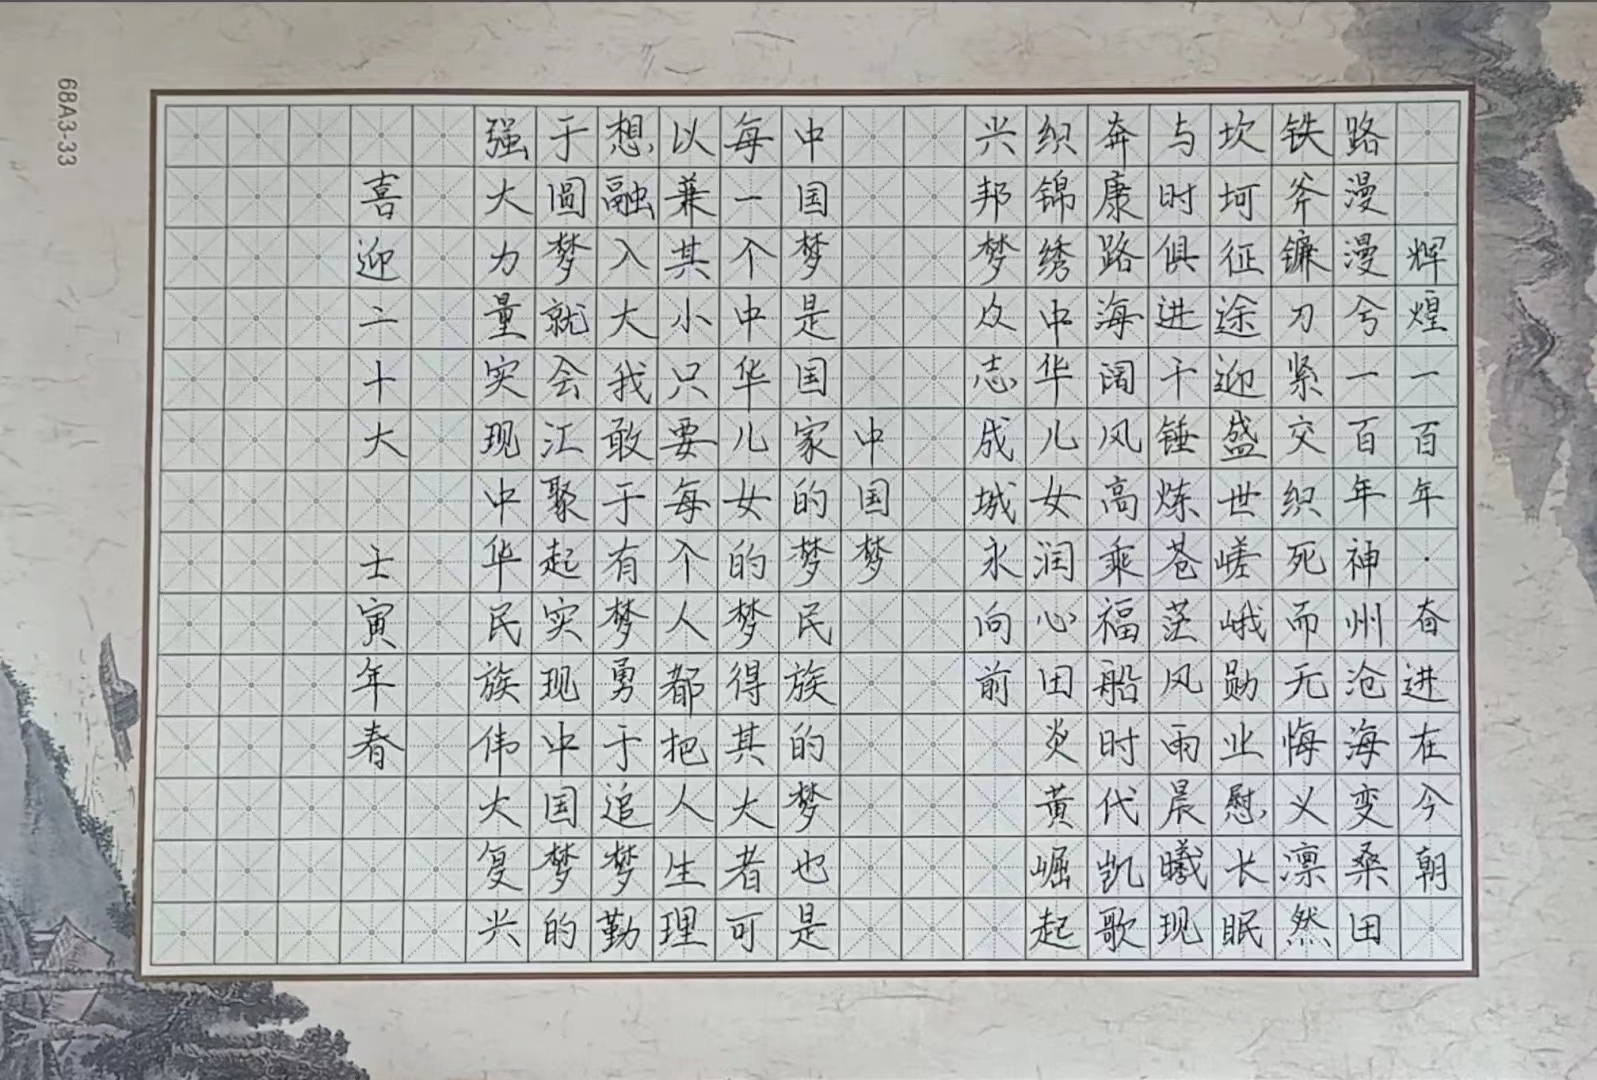 辉煌一百年·奋进在今朝
路漫漫兮一百年神州沧海变桑田
铁斧镰刀紧交织死而无悔义凛然
坎坷征途迎盛世嵯峨勋业慰长眠
与时俱进千锤炼苍茫风雨晨曦现
奔康路海阔风高乘福船时代凯歌
织锦绣中华儿女润心田炎黄崛起
兴邦梦众志成城永向前
中国梦
中国梦是国家的梦民族的梦也是
每一个中华儿女的梦得其大者可
以兼其小只要每个人都把人生理
想融入大我敢于有梦勇于追梦勤
于圆梦就会汇聚起实现中国梦的
强大力量实现中华民族伟大复兴
喜迎二十大 士寅年春
68A3-33